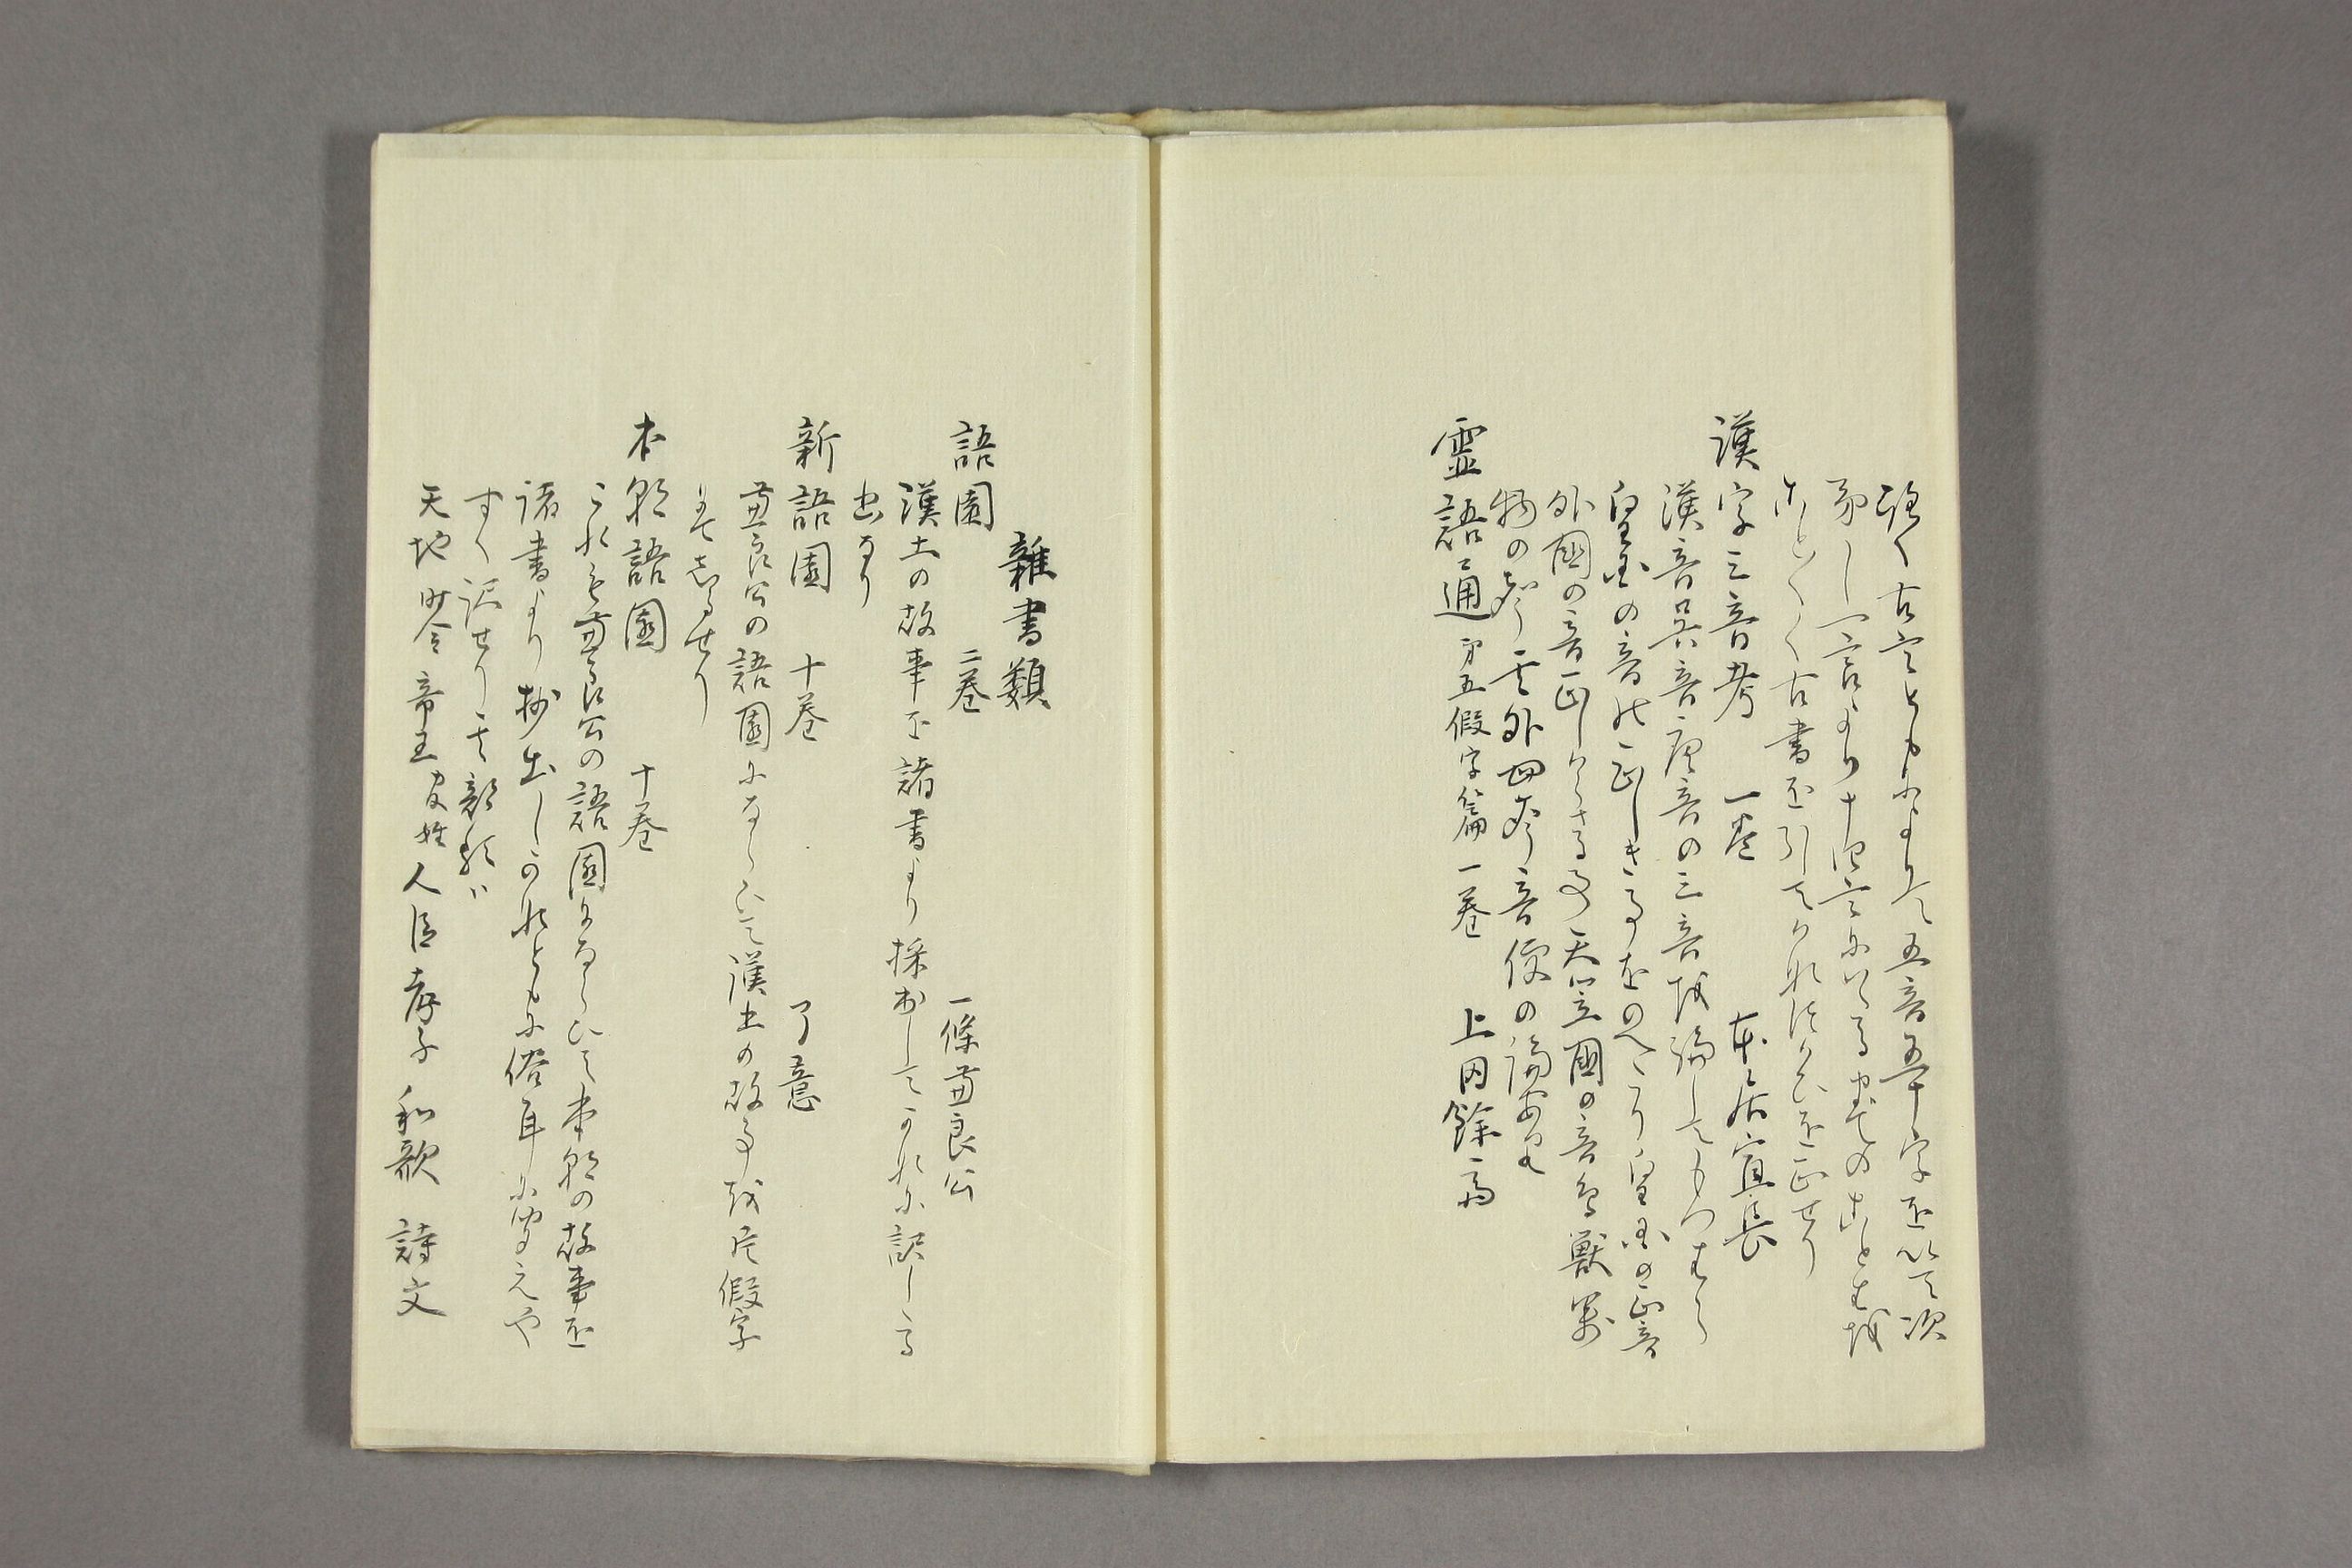 古言ともによりて五音五十字を以て次
第し一言より十余言にいたるまでのことはを
ことく古書を引てかなつかひを正せり
漢字三音考 一巻 本居宣長
漢音呉音唐音の三音を論してもつはら
皇国の音の正しき事をのへたり皇国の正音
外国の音正しからさる事天竺国の音鳥獣万
物の声其外四声音便の論あり
霊語通 第五假字篇 一巻 上田餘斎
雑書類
語園 二巻 一條兼良公
漢土の故事を諸書より採出してかなに訳したる
書なり
新語園 十巻 了意
兼良公の語園にならひて漢土の故事を片假字
にてしるせり
本朝語園 十巻
これも兼良公の語園にならひて本朝の故事を
諸書より抄出しかなともに俗耳に聞えや
すく訳せり其部類ハ
天地 時令 帝王 皇姓 人臣 孝子 和歌 詩文